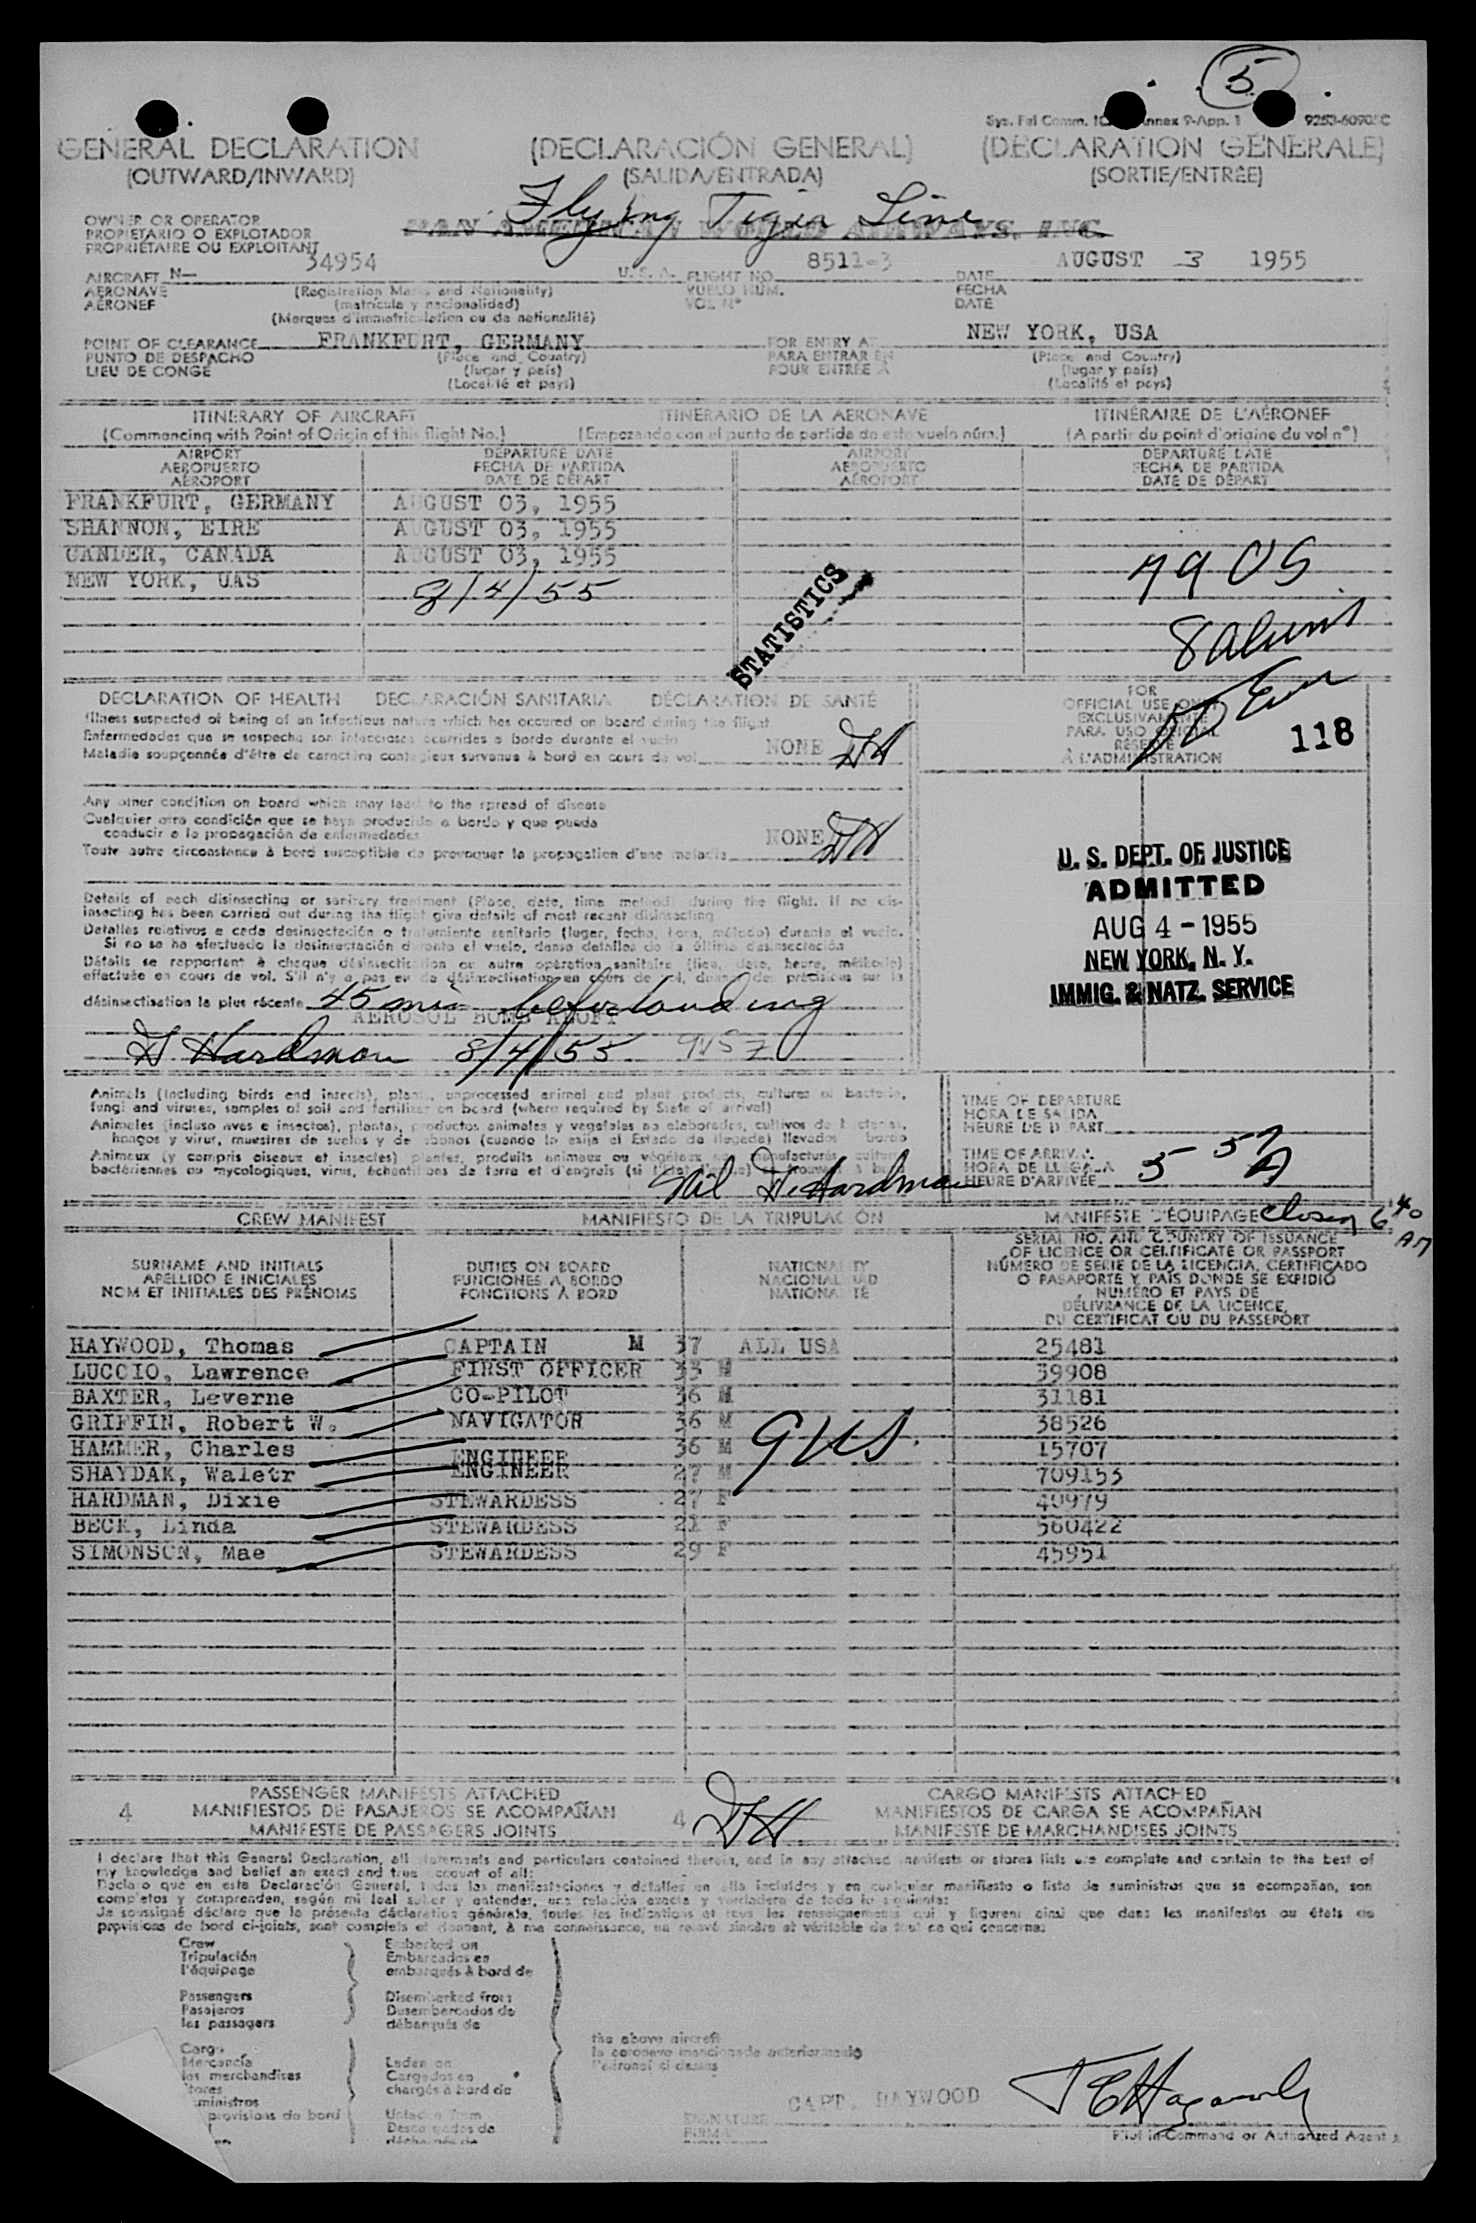 5
Sys. Fal Comm. Annex 9-App. 1
GENERAL DECLARATION (DECLARACIÓN GENERAL) (DÉCLARATION GÉNÉRALE)
(OUTWARD/INWARD) (SALIDA/ENTRADA) (SORTIE/ENTRÉE)
Flying Tiger Line
OWNER OR OPERATOR PAN AMERICAN WORLD AIRWAYS, INC.
PROPIETARIO O EXPLOTADOR
PROPRIÉTAIRE OU EXPLOITANT
AIRCRAFT N— 34954 U.S.A. FLIGHT NO. 8511-3 DATE AUGUST 3 1955
AERONAVE (Registration Marks and Nationality) VUELO NÚM. FECHA
AÉRONEF (matrícula y nacionalidad) VOL Nº DATE
(Marques d'immatriculation ou de nationalité)
POINT OF CLEARANCE FRANKFURT, GERMANY FOR ENTRY AT NEW YORK, USA
PUNTO DE DESPACHO (Place and Country) PARA ENTRAR EN (Place and Country)
LIEU DE CONGÉ (lugar y país) POUR ENTRÉE À (lugar y país)
(Localité et pays) (Localité et pays)
ITINERARY OF AIRCRAFT ITINERARIO DE LA AERONAVE ITINÉRAIRE DE L'AÉRONEF
(Commencing with Point of Origin of this flight No.) (Empezando con el punto de partida de este vuelo núm.) (A partir du point d'origine du vol nº)
AIRPORT DEPARTURE DATE AIRPORT DEPARTURE DATE
AEROPUERTO FECHA DE PARTIDA AEROPUERTO FECHA DE PARTIDA
AÉROPORT DATE DE DÉPART AÉROPORT DATE DE DÉPART
FRANKFURT, GERMANY AUGUST 03, 1955
SHANNON, EIRE AUGUST 03, 1955
GANDER, CANADA AUGUST 03, 1955
NEW YORK, UAS 8/4/55
79 US
8 aliens
STATISTICS
DECLARATION OF HEALTH DECLARACIÓN SANITARIA DÉCLARATION DE SANTÉ
FOR
OFFICIAL USE ONLY
EXCLUSIVAMENTE
PARA USO OFICIAL
RÉSERVÉ
À L'ADMINISTRATION
118
Illness suspected of being of an infectious nature which has occured on board during the flight
Enfermedades que se sospecha son infecciosas ocurridas a bordo durante el vuelo
Maladie soupçonnée d'être de caractère contagieux survenue à bord en cours de vol NONE DH
Any other condition on board which may lead to the spread of disease
Cualquier otra condición que se haya producido a bordo y que pueda
conducir a la propagación de enfermedades
Toute autre circonstance à bord susceptible de provoquer la propagation d'une maladie NONE DH
U. S. DEPT. OF JUSTICE
ADMITTED
AUG 4 - 1955
NEW YORK, N. Y.
IMMIG. & NATZ. SERVICE
Details of each disinsecting or sanitary treatment (Place, date, time method) during the flight. If no dis-
insecting has been carried out during the flight give details of most recent disinsecting
Detalles relativos a cada desinsectación o tratamiento sanitario (lugar, fecha, hora, método) durante el vuelo.
Si no se ha efectuado la desinsectación durante el vuelo, dense detalles de la última desinsectación
Détails se rapportant à chaque désinsectisation ou autre opération sanitaire (lieu, date, heure, méthode)
effectuée en cours de vol. S'il n'y a pas eu de désinsectisation en cours de vol, donner des précisions sur la
désinsectisation la plus récente 45 min before landing
AEROSOL BOMB ALOFT
D. Hardman 8/4/55
Animals (including birds and insects), plants, unprocessed animal and plant products, cultures of bacteria,
fungi and viruses, samples of soil and fertilizer on board (where required by State of arrival)
Animales (incluso aves e insectos), plantas, productos animales y vegetales no elaborados, cultivos de bacterias,
hongos y virus, muestras de suelos y de abonos (cuando lo exija el Estado de llegada) llevados a bordo
Animaux (y compris oiseaux et insectes) plantes, produits animaux ou végétaux non manufacturés cultures
bactériennes ou mycologiques, virus, échantillons de terre et d'engrais
Nil D. Hardman
TIME OF DEPARTURE
HORA DE SALIDA
HEURE DE DÉPART
TIME OF ARRIVAL
HORA DE LLEGADA
HEURE D'ARRIVÉE 5 57 A
CREW MANIFEST MANIFIESTO DE LA TRIPULACIÓN MANIFESTE D'ÉQUIPAGE
closing 6 40 AM
SURNAME AND INITIALS DUTIES ON BOARD NATIONALITY SERIAL NO. AND COUNTRY OF ISSUANCE
APELLIDO E INICIALES FUNCIONES A BORDO NACIONALIDAD OF LICENCE OR CERTIFICATE OR PASSPORT
NOM ET INITIALES DES PRÉNOMS FONCTIONS À BORD NATIONALITÉ NÚMERO DE SERIE DE LA LICENCIA, CERTIFICADO
O PASAPORTE Y PAÍS DONDE SE EXPIDIÓ
NUMÉRO ET PAYS DE
DÉLIVRANCE DE LA LICENCE,
DU CERTIFICAT OU DU PASSEPORT
HAYWOOD, Thomas CAPTAIN M 37 ALL USA 25481
LUCCIO, Lawrence FIRST OFFICER 33 M 39908
BAXTER, Leverne CO-PILOT 36 M 31181
GRIFFIN, Robert W. NAVIGATOR 36 M 38526
HAMMER, Charles ENGINEER 36 M 15707
SHAYDAK, Waletr ENGINEER 27 M 709153
HARDMAN, Dixie STEWARDESS 27 F 40979
BECK, Linda STEWARDESS 21 F 560422
SIMONSON, Mae STEWARDESS 29 F 45951
9 US
PASSENGER MANIFESTS ATTACHED CARGO MANIFESTS ATTACHED
4 MANIFIESTOS DE PASAJEROS SE ACOMPAÑAN 4 DH MANIFIESTOS DE CARGA SE ACOMPAÑAN
MANIFESTE DE PASSAGERS JOINTS MANIFESTE DE MARCHANDISES JOINTS
I declare that this General Declaration, all statements and particulars contained therein, and in any attached manifests or stores lists are complete and contain to the best of
my knowledge and belief an exact and true account of all:
Declaro que en esta Declaración General, todas las manifestaciones y detalles en ella incluidos y en cualquier manifiesto o lista de suministros que se acompañan, son
completos y comprenden, según mi leal saber y entender, una relación exacta y verdadera de todo lo siguiente:
Je soussigné déclare que la présente déclaration générale, toutes les indications et tous les renseignements qui y figurent ainsi que dans les manifestes ou états de
provisions de bord ci-joints, sont complets et donnent, à ma connaissance, un relevé sincère et véritable de tout ce qui concerne:
Crew Embarked on
Tripulación Embarcados en
l'équipage embarqués à bord de
Passengers Disembarked from
Pasajeros Desembarcados de
les passagers débarqués de
the above aircraft
la aeronave mencionada anteriormente
l'aéronef ci-dessus
Cargo
Mercancía Laden on
les merchandises Cargados en
Stores chargés à bord de
suministros
provisions de bord Unladen from
Descargados de
SIGNATURE CAPT. HAYWOOD
FIRMA
Pilot in-Command or Authorized Agent